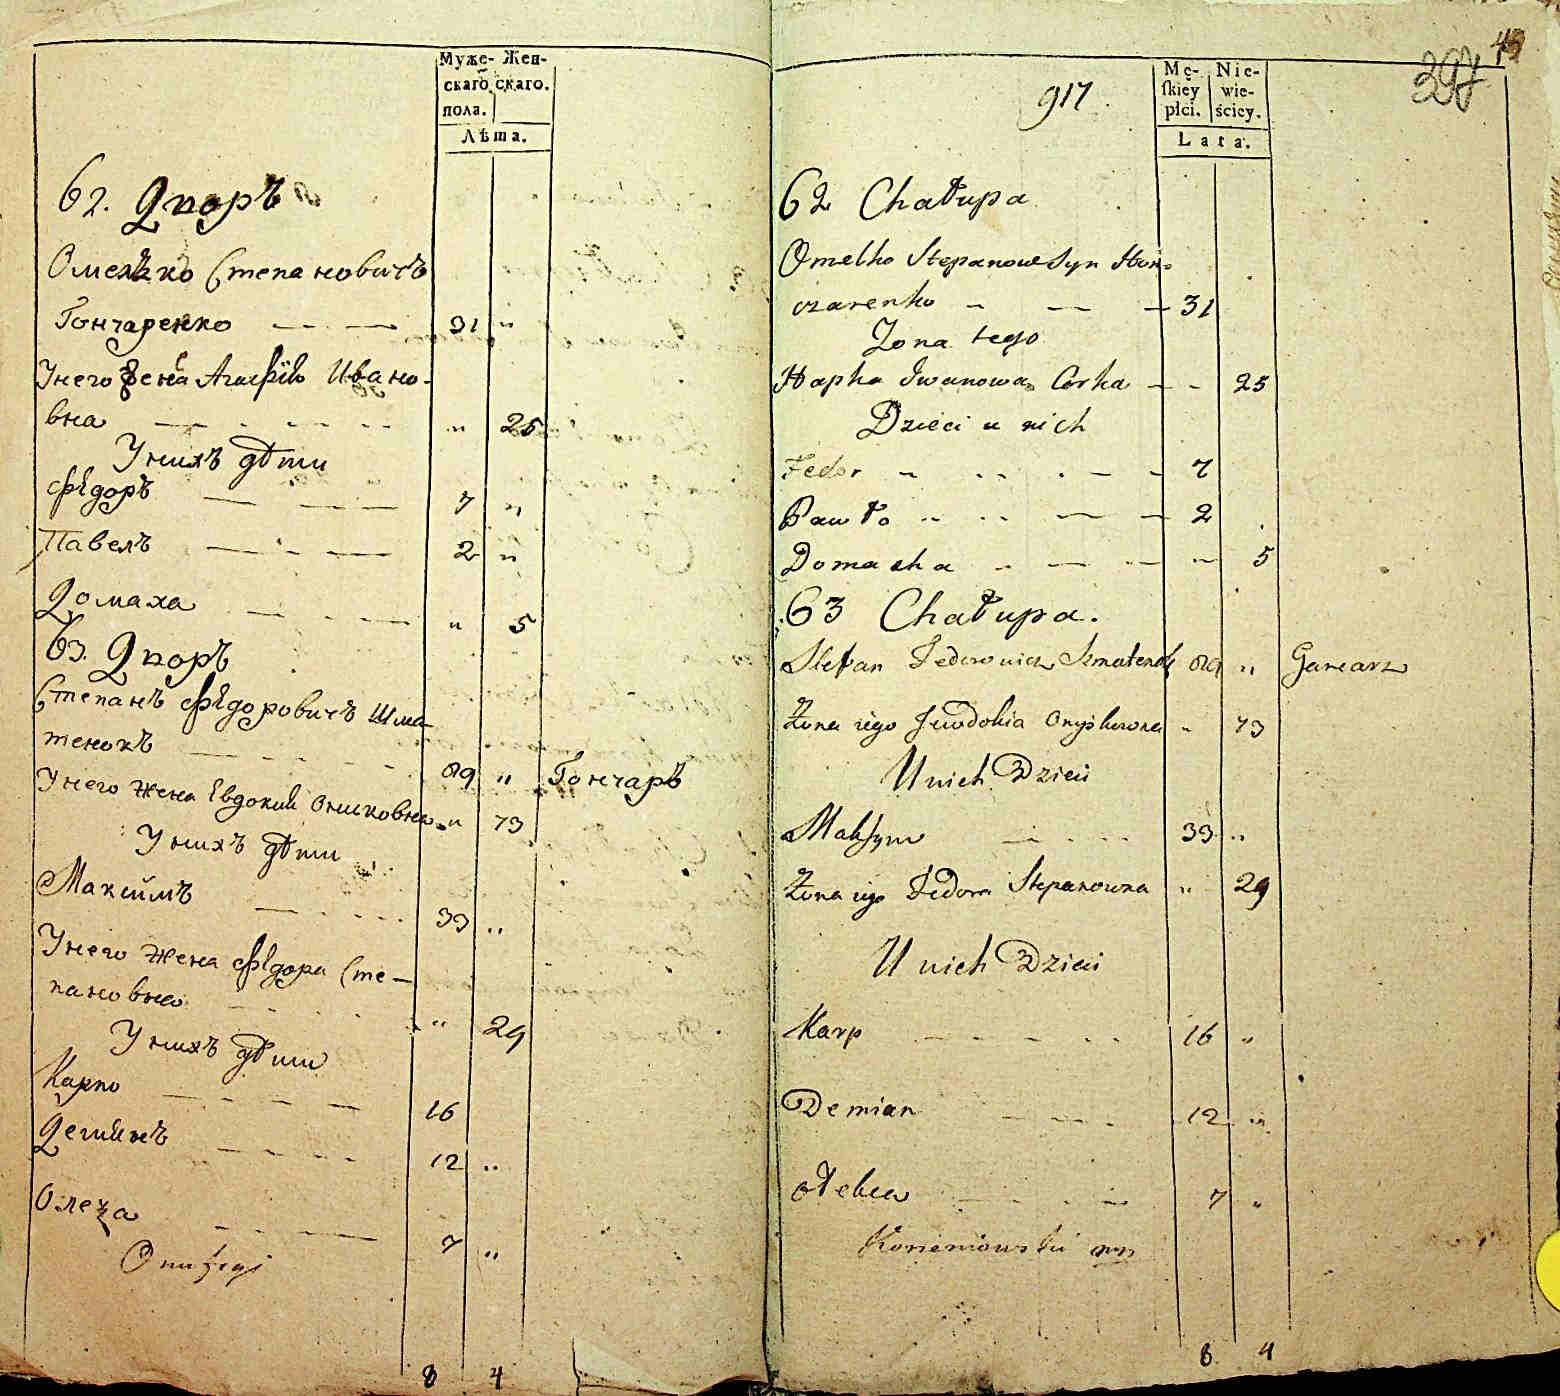 Муже- Жен-
скаго скаго.
пола.
Лѣта.
62. Дворъ
Омелько Степановичъ
Гончаренко 31 "
У него жена Агафія Ивано-
вна " 25
У нихъ дѣти
Фёдоръ 7 "
Павелъ 2 "
Домаха " 5
63. Дворъ
Степанъ Фёдоровичъ Шма-
тенокъ 89 " Гончаръ
У него жена Евдокия Онисковна " 73
У нихъ дѣти
Максимъ 33 "
У него жена Фёдора Сте-
пановна " 29
У нихъ дѣти
Карпо 16
Демиянъ 12 "
Олекса 7 "
8 4
49
297
917
Mę- Nie-
skiey wie-
płci. ściey.
Lata.
62 Chałupa
Omelko Stepanow Syn Hon-
czarenko 31
Zona tego
Hapka Iwanowa Corka 25
Dzieci u nich
Fedor 7
Pawło 2
Domacha 5
63 Chałupa.
Stefan Fedorowicz Szmatenok 89 " Garcarz
Żona iego Jewdokia Onyśkowna " 73
U nich Dzieci
Maksym 33 "
Żona iego Fedora Stepanowna " 29
U nich Dzieci
Karp 16 "
Demian 12 "
7 "
8 4